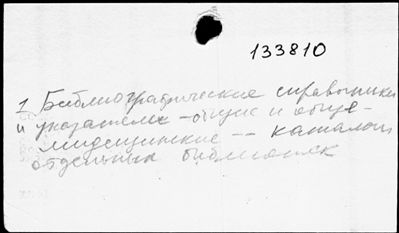 133810
1 Библиографические справочники
и указатели - общие и обще-
медицинские -- каталоги
отдельных библиотек